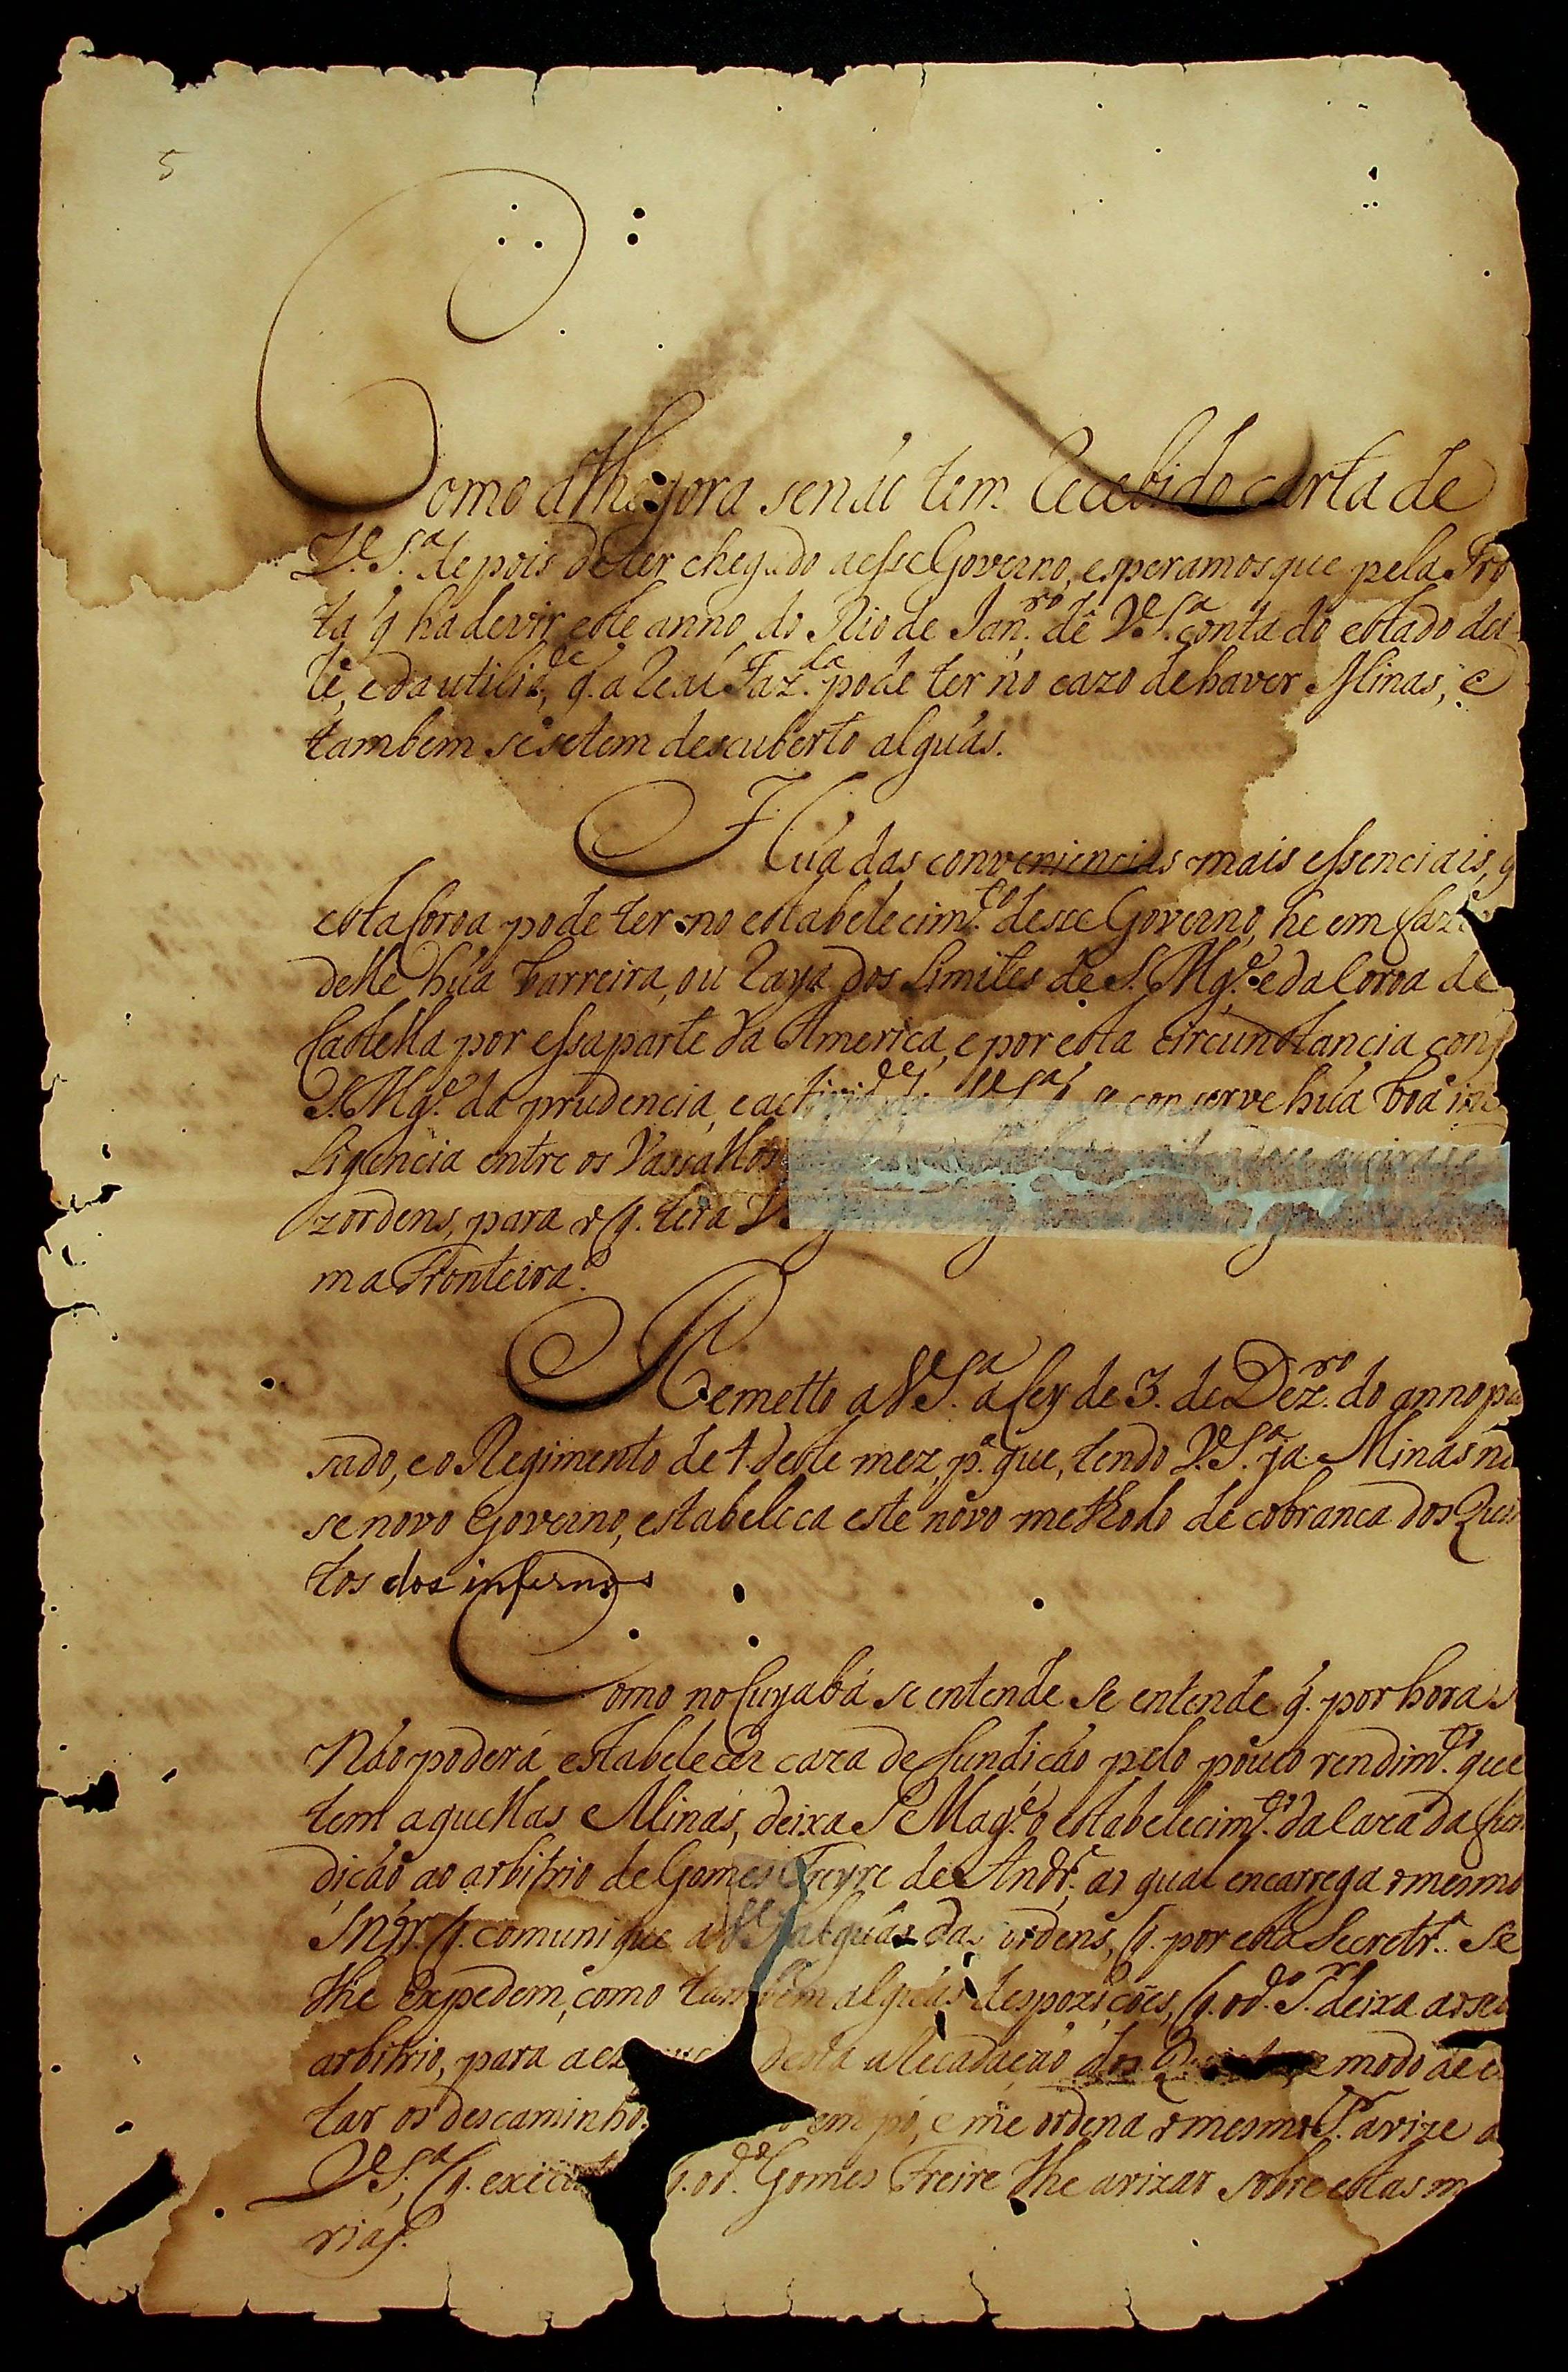 5
Como athegora senaõ tem Recebido carta de
V.S.ª depois deter chegado aesse Governo, esperamos que pela Fro
ta q̃ hadevir este anno do Rio de Jan.ro dê V.S.ª conta do estado del
le, e da utilid.de q. a Real Faz.da pode ter no cazo de haver Minas, e
tambem sesetem descuberto alguãs.
Huã das conveniencias mais essenciais, q
esta Coroa pode ter no estabelecim.to desse Governo, he em faze
delle huã barreira, ou Raya dos Limites de S. Mg.e e da Coroa de
Castella por essa parte da America, e por esta circunstancia conf
S. Mg.e da prudencia, e activid.e de V.S.ª q. se conserve huã boa in
ligencia entre os Vassallos
zordens, para o q. terá V.
ma Fronteira.
Remetto a V.S.ª a Ley de 3. de Dez.ro do anno pa
sado, e o Regimento de 4. deste mez, p.ª que, tendo V.S.ª ja Minas n
se novo Governo, estabeleca este novo methodo de cobranca dos Quin
tos dos infernos
Como no Cuyabá se entende se entende q. por hora s
Não poderá estabelecer caza de fundicáo pelo pouco rendim.to que
tem aquellas Minas, deixa S Mag.e o estabelecim.to da Caza da fun
dicáo ao arbitrio de Gomes Freyre de Andr.e ao qual encarrega o mesmo
Snr. q. comunique a V.S.ª alguãs das ordens, q. por esta Secretr.ª se
lhe expedem, como tambem alguãs despoziçoẽs, q. o d.o S.r deixa ao seu
arbitrio, para a ex desta aRecadação dos Q e modo de e
tar os descaminhos em pó, e me ordena o mesmo S.r avize a
V.S.ª, q. exicut q. o d.o Gomes Freire lhe avizar sobre estas m
rias.